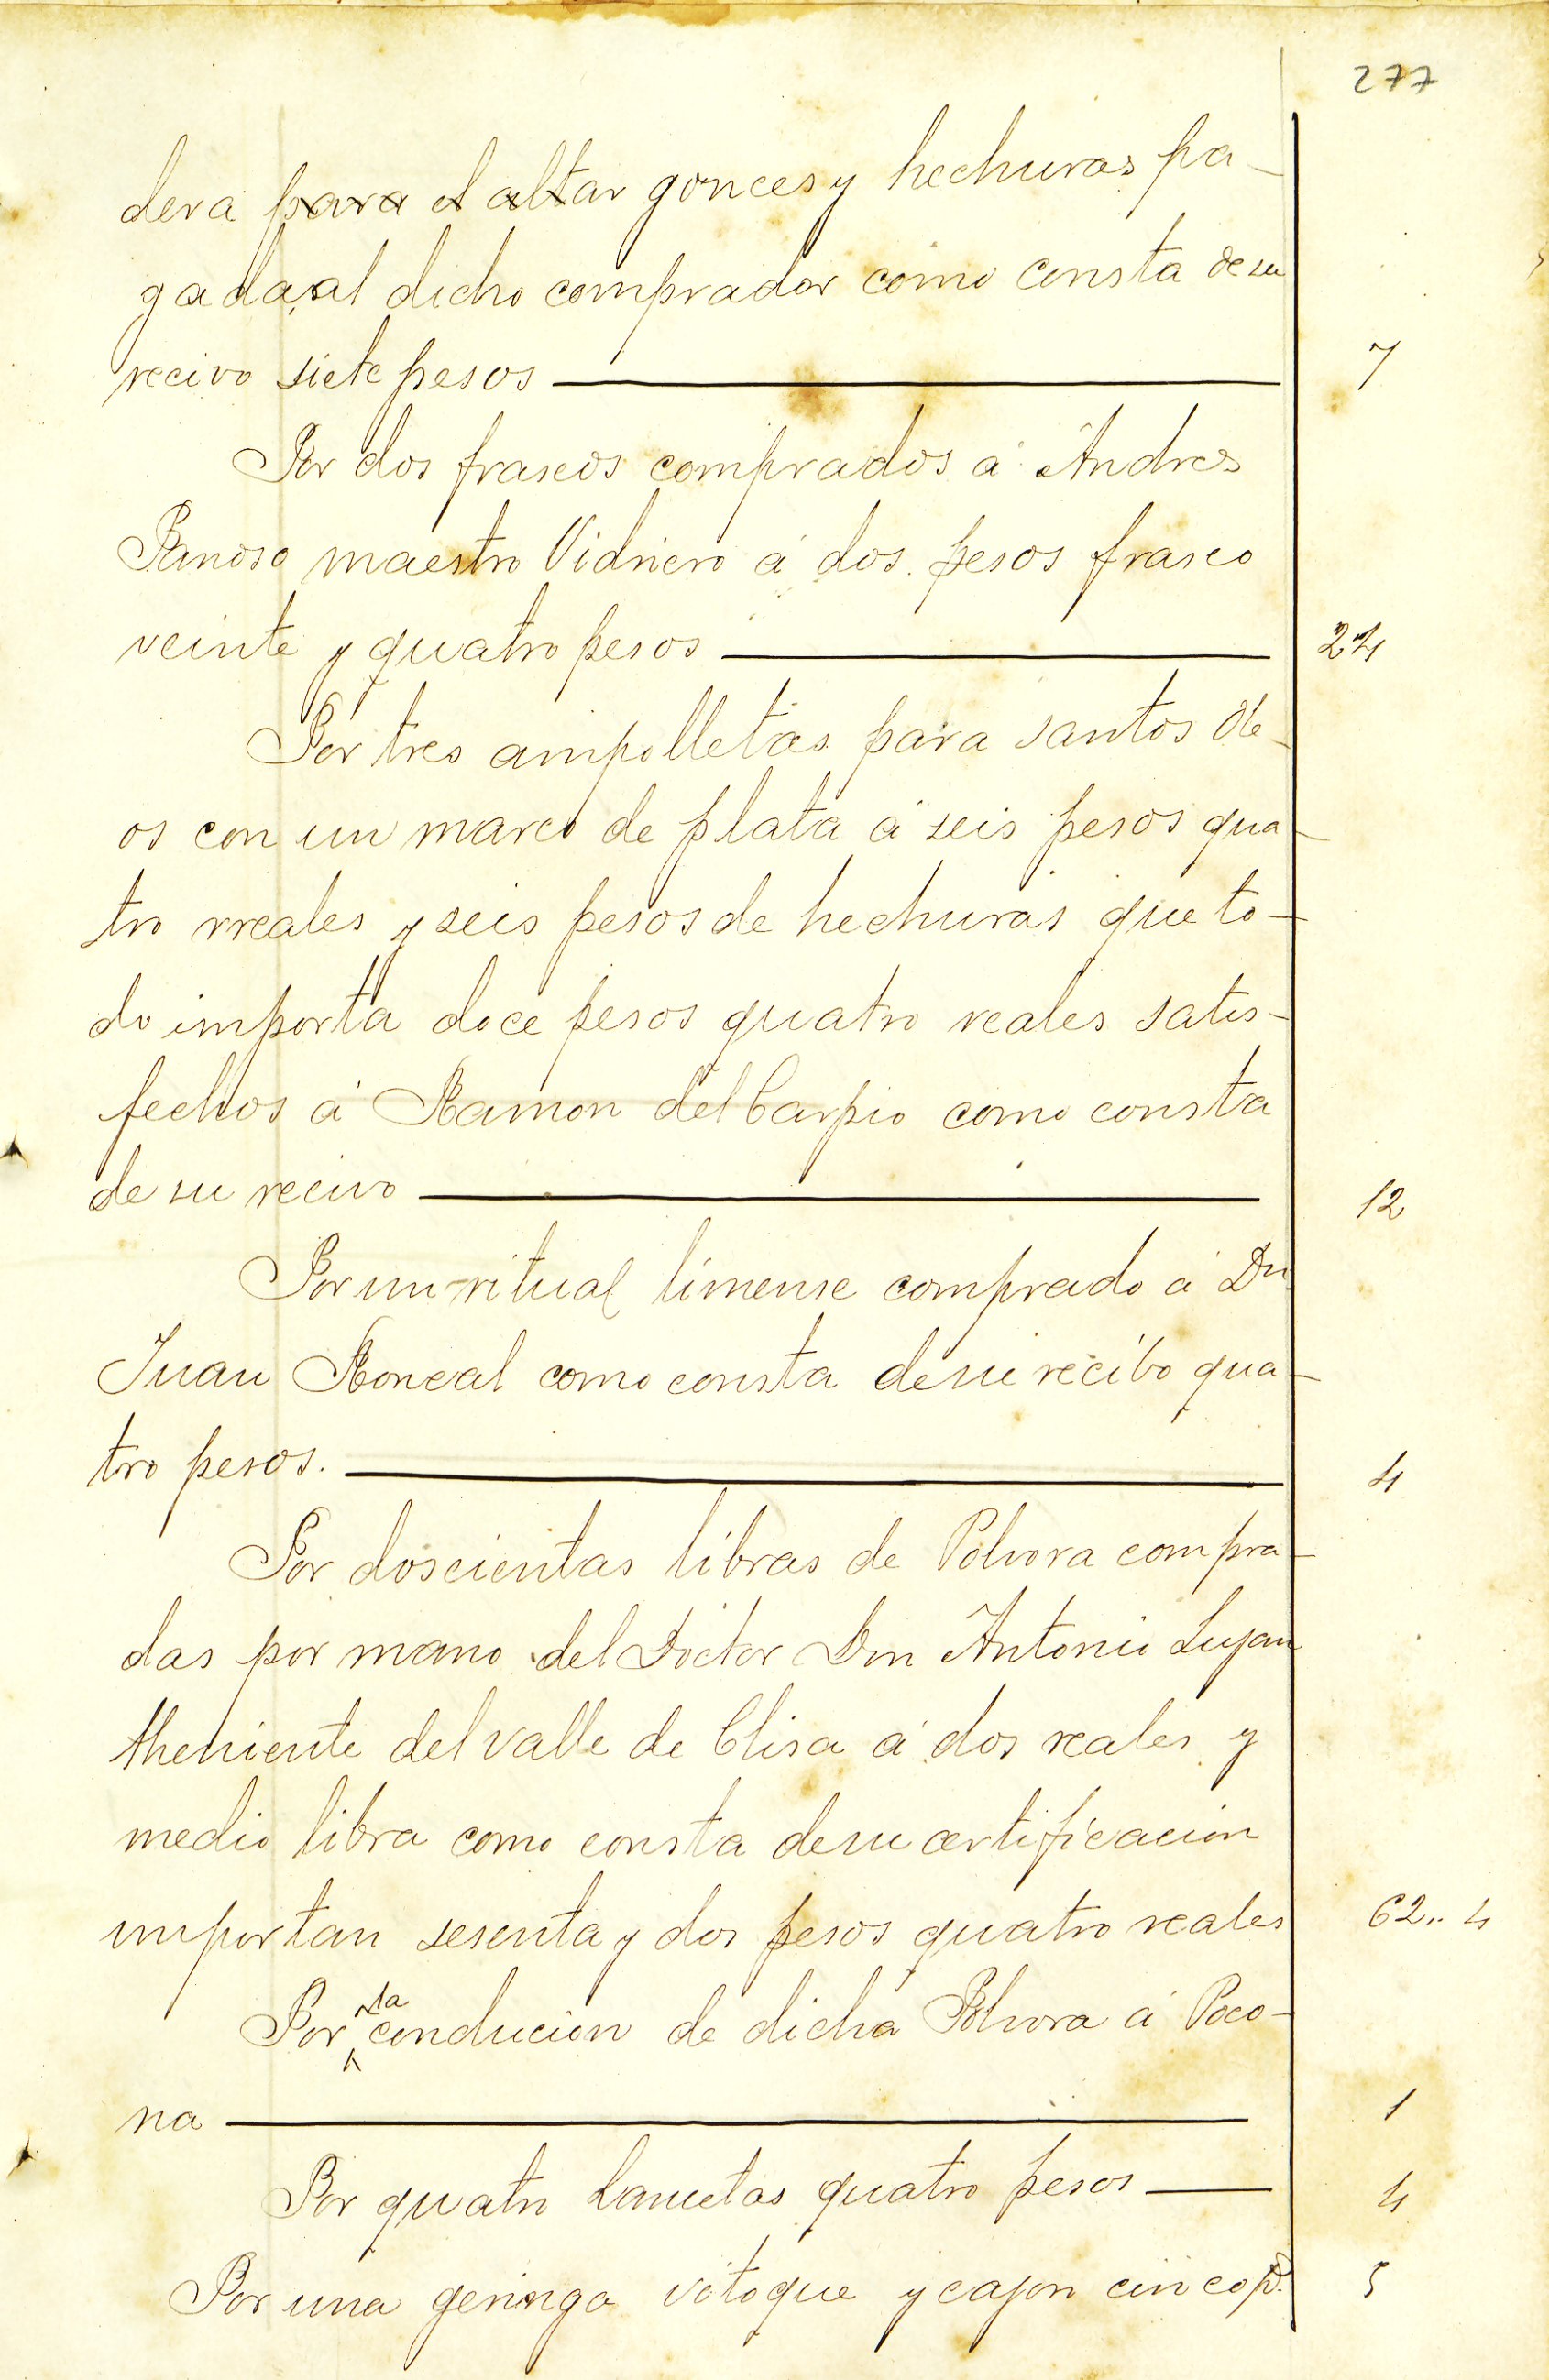 277
dera para el altar gonces y hechuras pa-
gada al dicho comprador como consta de su
recivo siete pesos 7
Por dos frascos comprados á Andres
Panoso maestro Vidriero á dos pesos frasco
veinte y quatro pesos 24
Por tres ampolletas para santos óle-
os con un marco de plata á seis pesos qua-
tro rreales y seis pesos de hechuras que to-
do importa doce pesos quatro reales satis-
fechos á Ramon del Carpio como consta
de su recivo 12
Por un ritual limense comprado á Dn
Juan Roncal como consta de su recibo qua-
tro pesos. 4
Por doscientas libras de Polvora compra-
das por mano del Doctor Don Antonio Lujan
theniente del valle de Clisa á dos reales y
medio libra como consta de su certificacion
importan sesenta y dos pesos quatro reales 62.. 4
Por la conducion de dicha Polvora á Poco-
na 1
Por quatro Lancetas quatro pesos 4
Por una geringa vitoque y cajon cinco p. 5